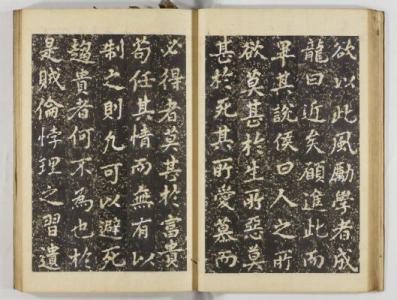 欲以此風勵學者成
龍曰近矣願進此而
畢其說侯曰人之所
欲莫甚於生所惡莫
甚於死其所愛慕而
必得者莫甚於富貴
苟任其情而無有以
制之則凡可以避死
趨貴者何不為也於
是賊倫悖理之習遺